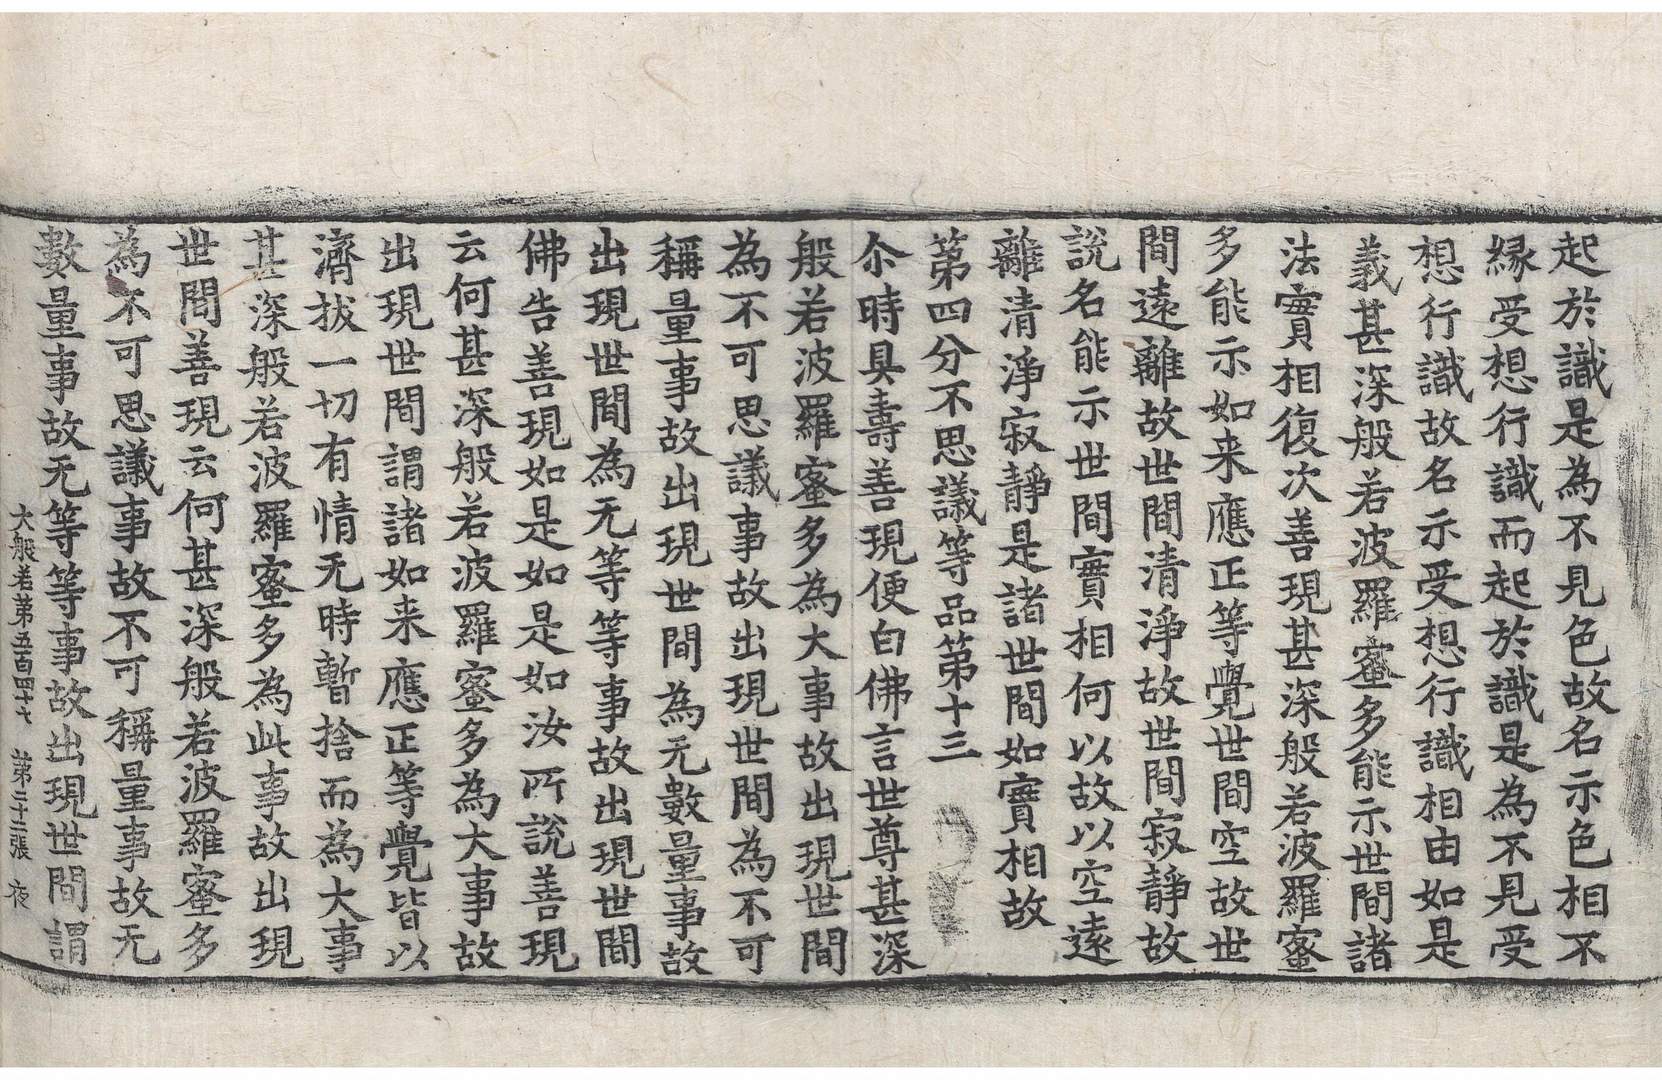 起於識是為不見色故名示色相不
緣受想行識而起於識是為不見受
想行識故名示受想行識相由如是
義甚深般若波羅蜜多能示世間諸
法實相復次善現甚深般若波羅蜜
多能示如来應正等覺世間空故世
間遠離故世間清淨故世間寂靜故
說名能示世間實相何以故以空遠
離清淨寂靜是諸世間如實相故
第四分不思議等品第十三
尒時具壽善現便白佛言世尊甚深
般若波羅蜜多為大事故出現世間
為不可思議事故出現世間為不可
稱量事故出現世間為无數量事故
出現世間為无等等事故出現世間
佛告善現如是如是如汝所說善現
云何甚深般若波羅蜜多為大事故
出現世間謂諸如来應正等覺皆以
濟拔一切有情无時暫捨而為大事
甚深般若波羅蜜多為此事故出現
世間善現云何甚深般若波羅蜜多
為不可思議事故不可稱量事故无
數量事故无等等事故出現世間謂
大般若第五百四十七 第二十二張 夜